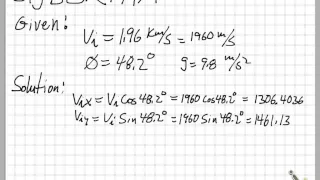 Given:
Vi = 1.96 Km/s = 1960 m/s
Ø = 48.2° g = 9.8 m/s²
Solution:
Vix = Vi Cos 48.2° = 1960 cos 48.2° = 1306.4036
Viy = Vi Sin 48.2° = 1960 Sin 48.2° = 1461.13